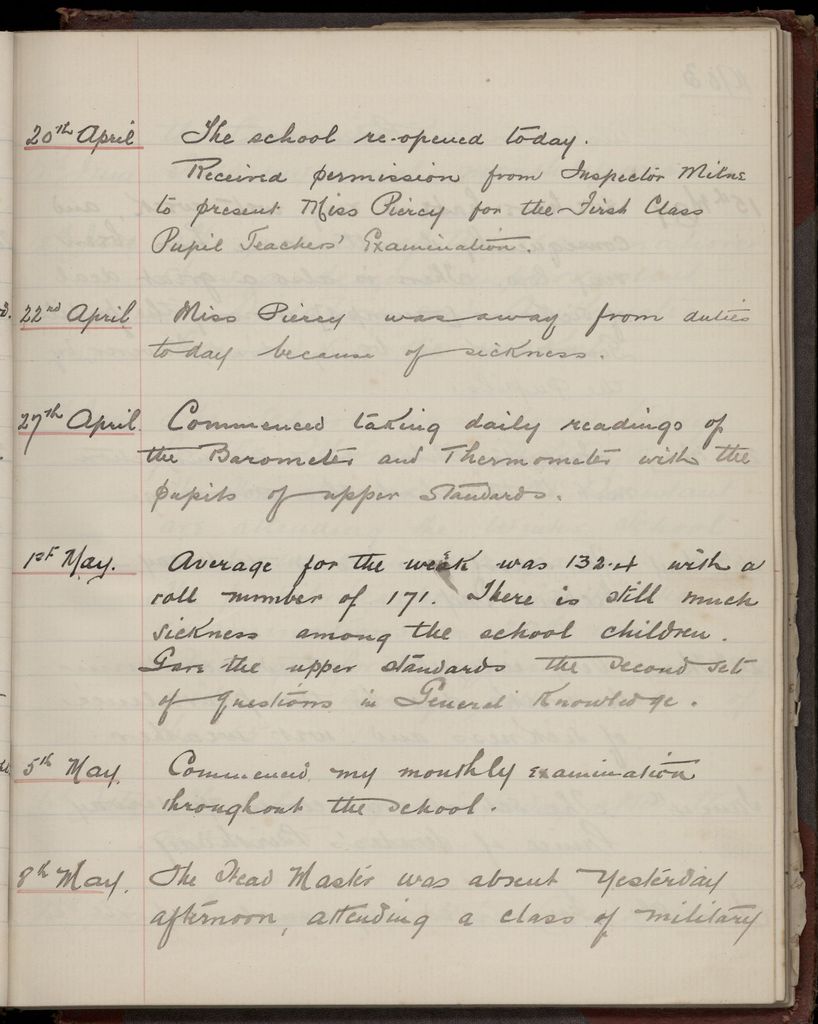 20th April The school re-opened today.
Received permission from Inspector Milne
to present Miss Piercy for the First Class
Pupil Teachers' Examination.
22nd April Miss Piercy was away from duties
today because of sickness.
27th April Commenced taking daily readings of
the Barometer and Thermometer with the
pupils of upper standards.
1st May. Average for the week was 132.4 with a
roll number of 171. There is still much
sickness among the school children.
Gave the upper standards the second set
of questions in General Knowledge.
5th May. Commenced my monthly examination
throughout the school.
8th May. The Head Master was absent yesterday
afternoon, attending a class of military